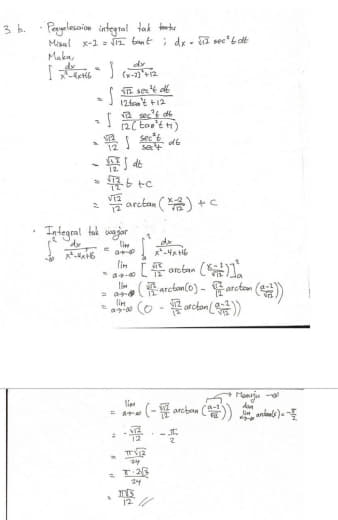 3. b. • Penyelesaian integral tak tentu
Misal x-2 = √12 tan t ; dx = √12 sec² t dt
Maka,
∫ dx/(x²-4x+16) = ∫ dx/((x-2)²+12)
= ∫ (√12 sec² t dt)/(12 tan² t + 12)
= ∫ (√12 sec² t dt)/(12 (tan² t + 1))
= √12/12 ∫ (sec² t)/(sec² t) dt
= √12/12 ∫ dt
= √12/12 t + C
= √12/12 arctan ((x-2)/√12) + C
• Integral tak wajar
∫_{-∞}^{2} dx/(x²-4x+16) = lim_{a→-∞} ∫_{a}^{2} dx/(x²-4x+16)
= lim_{a→-∞} [√12/12 arctan ((x-2)/√12)]_{a}^{2}
= lim_{a→-∞} (√12/12 arctan(0) - √12/12 arctan ((a-2)/√12))
= lim_{a→-∞} (0 - √12/12 arctan ((a-2)/√12))
→ Menuju -∞
= lim_{a→-∞} (-√12/12 arctan ((a-2)/√12)) dan lim arctan(x) = -π/2
= -√12/12 · -π/2
= π√12/24
= π·2√3/24
= π√3/12 //